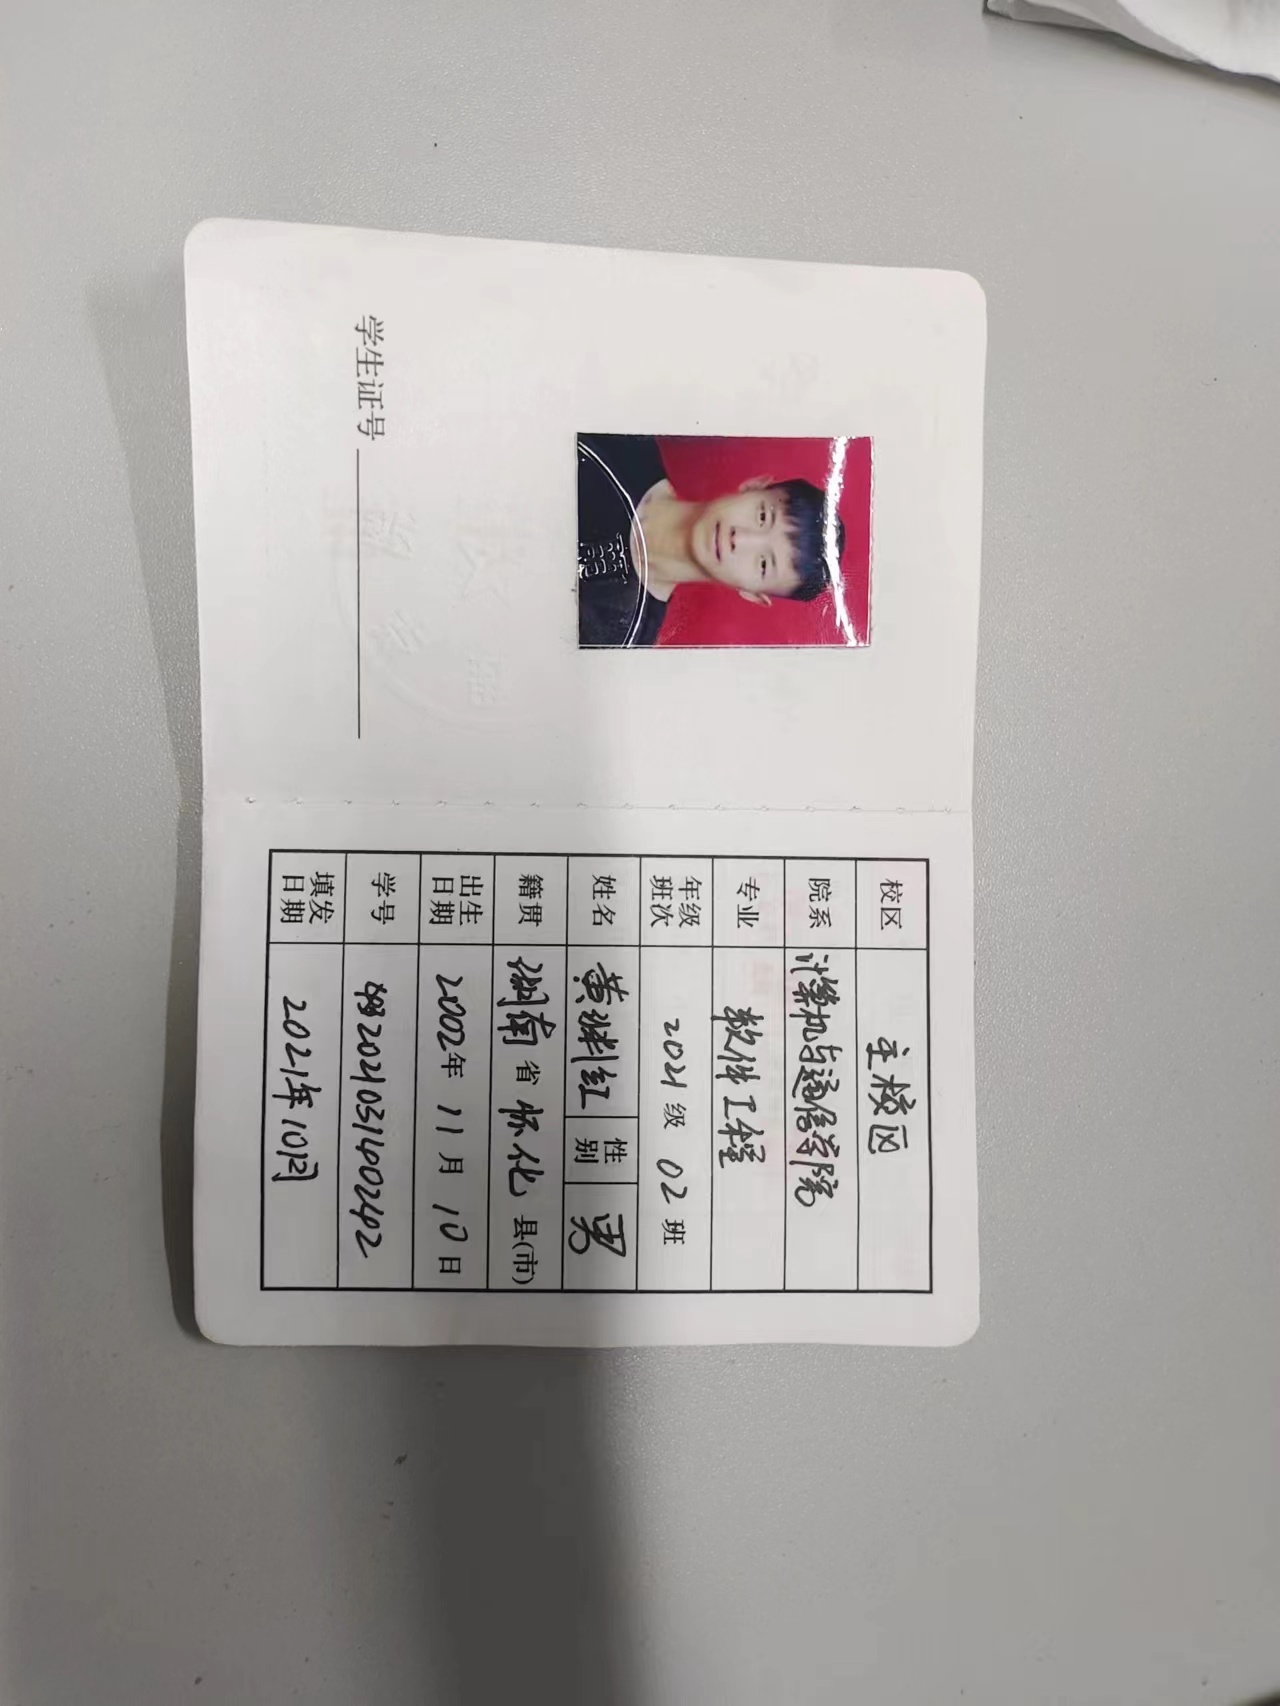 学生证号
校区 主校区
院系 计算机与通信学院
专业 软件工程
年级班次 2021级 02班
姓名 黄渊红 性别 男
籍贯 湖南省 怀化 县(市)
出生日期 2002年 11月 10日
学号 202103140242
填发日期 2021年10月